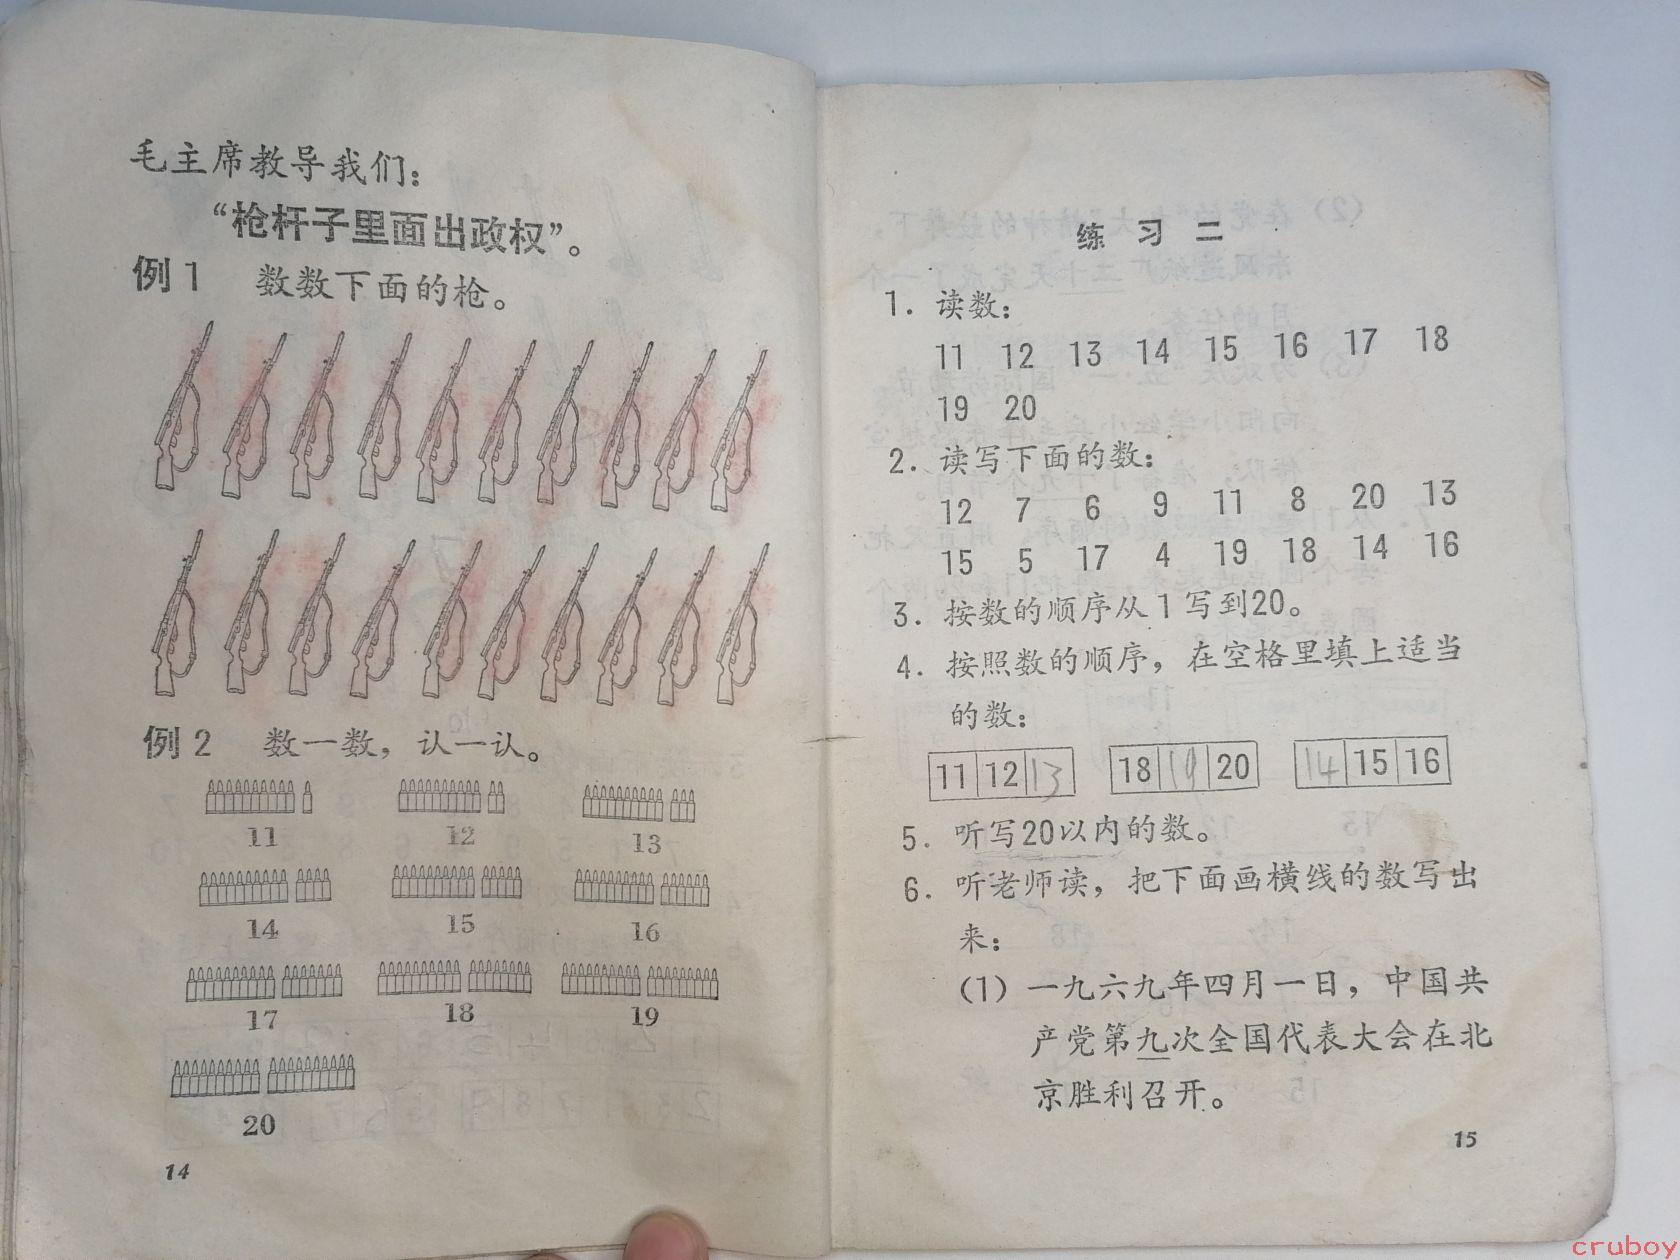 毛主席教导我们：
“枪杆子里面出政权”。
例1 数数下面的枪。
例2 数一数，认一认。
11 12 13
14 15 16
17 18 19
20
14
练习二
1. 读数：
11 12 13 14 15 16 17 18
19 20
2. 读写下面的数：
12 7 6 9 11 8 20 13
15 5 17 4 19 18 14 16
3. 按数的顺序从1写到20。
4. 按照数的顺序，在空格里填上适当
的数：
11 12 13 18 19 20 14 15 16
5. 听写20以内的数。
6. 听老师读，把下面画横线的数写出
来：
(1) 一九六九年四月一日，中国共
产党第九次全国代表大会在北
京胜利召开。
15
cruboy